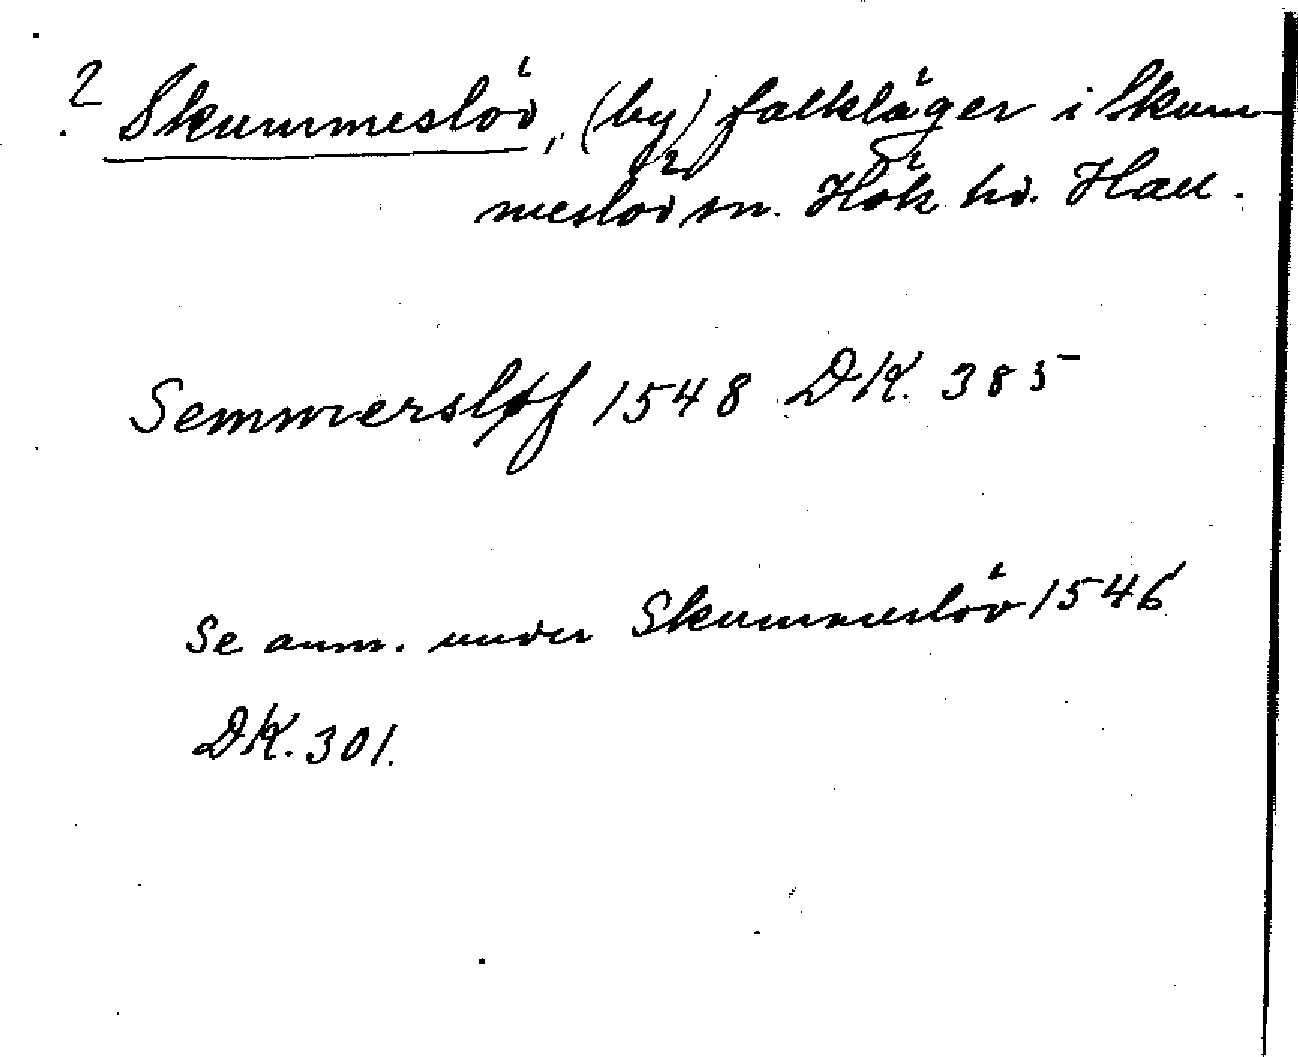 ? Skummeslöv, (by) falkläger i Skum-
meslöv sn. Hök hd. Hall.
Semmersløf 1548 DK. 385
Se anm. under Skummeslöv 1546
DK. 301.